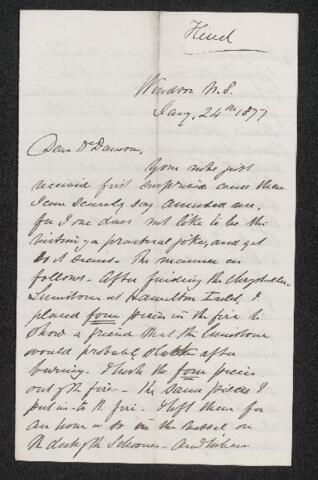 Hind
Windsor N.S.
Jany. 24th 1877
Dear Dr Dawson,
Your note just
received first surprised &
I can scarcely say amused me.
for one does not like to be the
victim of a practical joke, and yet
so it seems. The manner as
follows. After finding the
Limestone at Hamilton Inlet, I
placed four pieces in the fire to
show a friend that the limestone
would probably slake after
burning. I took the four pieces
out of the fire - the same pieces I
put in to the fire. I left them for
an hour or so in the vessel on
the deck of the Schooner. And when